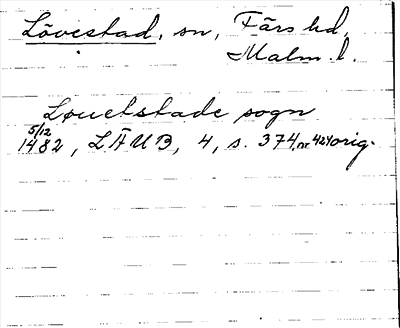 Lövestad, sn, Färs hd,
Malm. l.
Louetstade sogn
5/12
1482, LÄUB, 4, s. 374, nr 424 orig.